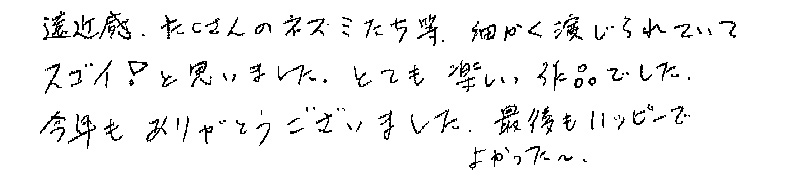 遠近感、たくさんのネズミたち等、細かく演じられていて
スゴイ!と思いました。とても楽しい作品でした。
今年もありがとうございました。最後もハッピーで
よかった〜。